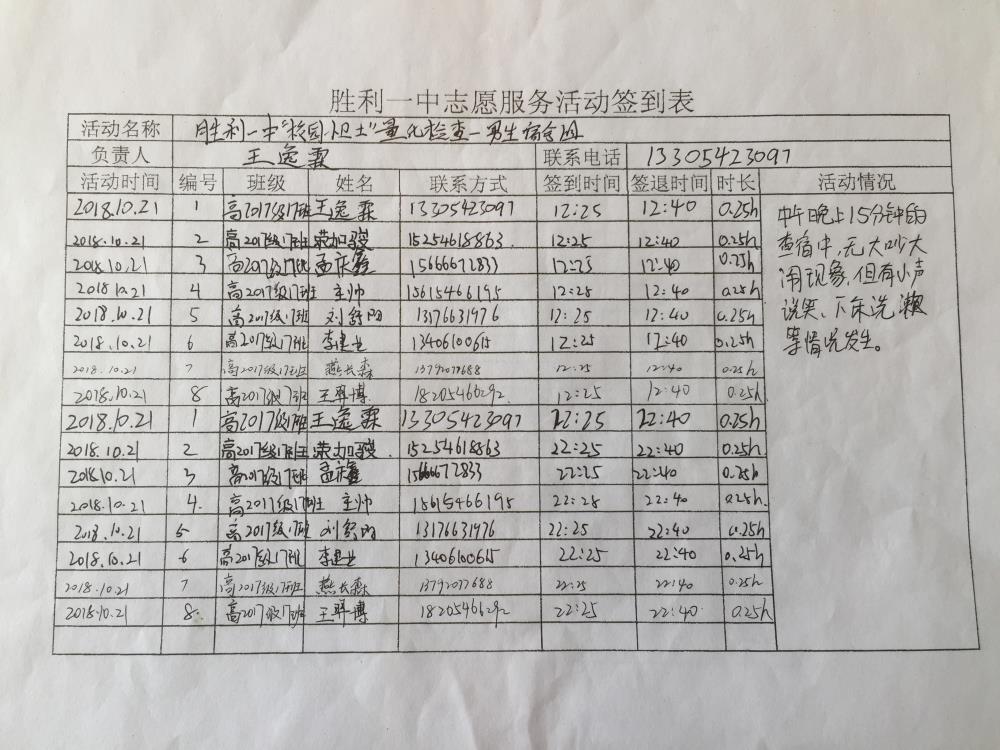 胜利一中志愿服务活动签到表
活动名称 胜利一中"校园卫士"量化检查－男生宿舍组
负责人 王逸霖 联系电话 13305423097
活动时间 编号 班级 姓名 联系方式 签到时间 签退时间 时长 活动情况
2018.10.21 1 高2017级17班 王逸霖 13305423097 12:25 12:40 0.25h 中午晚上15分钟的
2018.10.21 2 高2017级17班 荣加骏 15254618863. 12:25 12:40 0.25h 查宿中,无大吵大
2018.10.21 3 高2017级17班 孟庆鑫 15666672833 12:25 12:40 0.25h 闹现象,但有小声
2018.10.21 4 高2017级17班 主帅 15615466195 12:25 12:40 0.25h 说笑、下床洗漱
2018.10.21 5 高2017级17班 刘舒阳 13176631976 12:25 12:40 0.25h 等情况发生。
2018.10.21 6 高2017级17班 李建业 13406100615 12:25 12:40 0.25h
2018.10.21 7 高2017级17班 燕长森 13792077688 12:25 12:40 0.25h
2018.10.21 8 高2017级17班 王羿博 18205466292. 12:25 12:40 0.25h
2018.10.21 1 高2017级17班 王逸霖 13305423097 22:25 22:40 0.25h
2018.10.21 2 高2017级17班 荣加骏. 15254618863 22:25 22:40 0.25h
2018.10.21 3 高2017级17班 孟庆鑫 15666672833 22:25 22:40 0.25h
2018.10.21 4. 高2017级17班 主帅 15615466195 22:25 22:40 0.25h.
2018.10.21 5 高2017级17班 刘舒阳 13176631976 22:25 22:40 0.25h
2018.10.21 6 高2017级17班 李建业 13406100615 22:25 22:40 0.25h
2018.10.21 7 高2017级17班 燕长森 13792077688 22:25 22:40 0.25h
2018.10.21 8. 高2017级17班 王羿博 18205466292 22:25 22:40. 0.25h